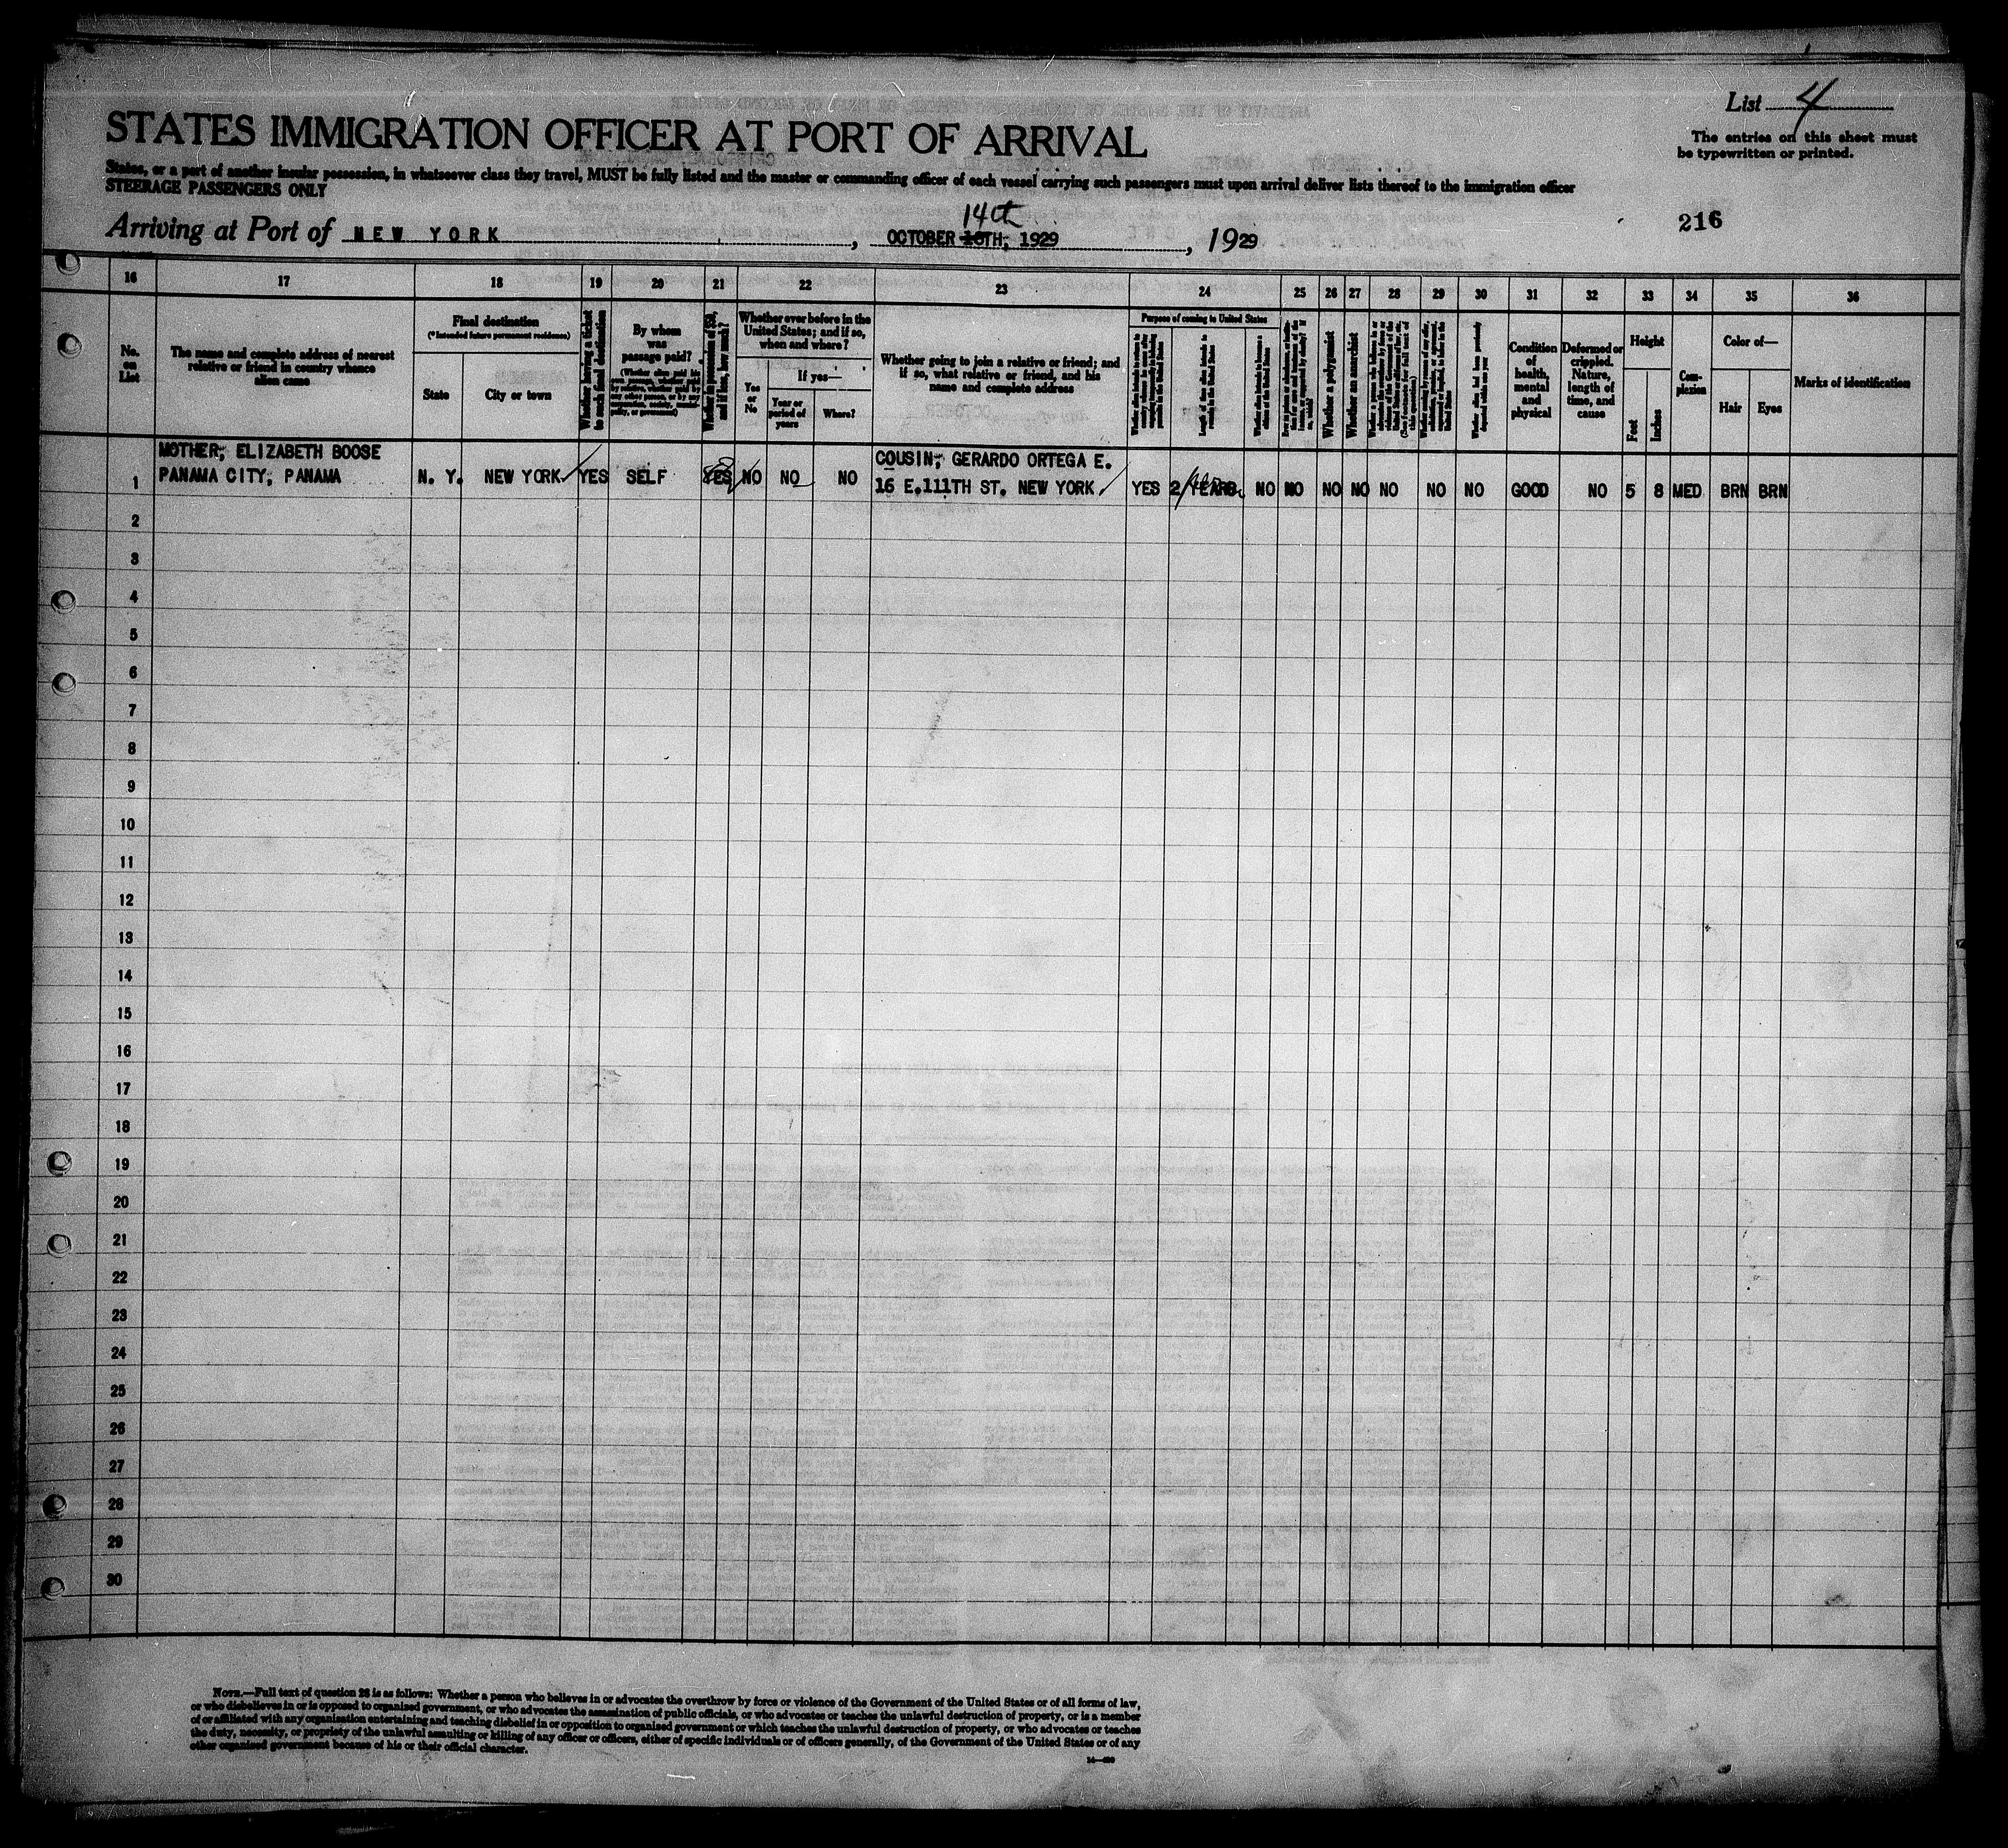 List 4
The entries on this sheet must
be typewritten or printed.
STATES IMMIGRATION OFFICER AT PORT OF ARRIVAL
States, or a part of another insular possession, in whatsoever class they travel, MUST be fully listed and the master or commanding officer of each vessel carrying such passengers must upon arrival deliver lists thereof to the immigration officer
STEERAGE PASSENGERS ONLY
216
14th
Arriving at Port of NEW YORK, OCTOBER TH, 1929, 1929
16 17 18 19 20 21 22 23 24 25 26 27 28 29 30 31 32 33 34 35 36
No. on List
The name and complete address of nearest
relative or friend in country whence
alien came
Final destination
(*Intended future permanent residence)
State
City or town
Whether having a ticket
to such final destination
By whom
was
passage paid?
Whether in possession of $50,
and if less, how much?
Whether ever before in the
United States; and if so,
when and where?
Yes
or
No
If yes—
Year or
period of
years
Where?
Whether going to join a relative or friend; and
if so, what relative or friend, and his
name and complete address
Purpose of coming to United States
Length of time alien intends to
remain in the United States
Whether alien intends to become a
citizen of the United States
Whether a polygamist
Whether an anarchist
Condition
of
health,
mental
and
physical
Deformed or
crippled.
Nature,
length of
time, and
cause
Height
Feet
Inches
Com-
plexion
Color of—
Hair
Eyes
Marks of identification
MOTHER; ELIZABETH BOOSE
COUSIN; GERARDO ORTEGA E.
1 PANAMA CITY, PANAMA N. Y. NEW YORK YES SELF YES NO NO NO 16 E.111TH ST. NEW YORK YES 2 YEARS NO NO NO NO NO NO NO GOOD NO 5 8 MED BRN BRN
2
3
4
5
6
7
8
9
10
11
12
13
14
15
16
17
18
19
20
21
22
23
24
25
26
27
28
29
30
NOTE.—Full text of question 28 is as follows: Whether a person who believes in or advocates the overthrow by force or violence of the Government of the United States or of all forms of law,
or who disbelieves in or is opposed to organized government, or who advocates the assassination of public officials, or who advocates or teaches the unlawful destruction of property, or is a member
of or affiliated with any organization entertaining and teaching disbelief in or opposition to organized government or which teaches the unlawful destruction of property, or who advocates or teaches
the duty, necessity, or propriety of the unlawful assaulting or killing of any officer or officers, either of specific individuals or of officers generally, of the Government of the United States or of any
other organized government because of his or their official character.